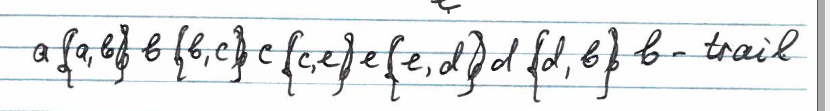 a {a,b} b {b,c} c {c,e} e {e,d} d {d,b} b - trail